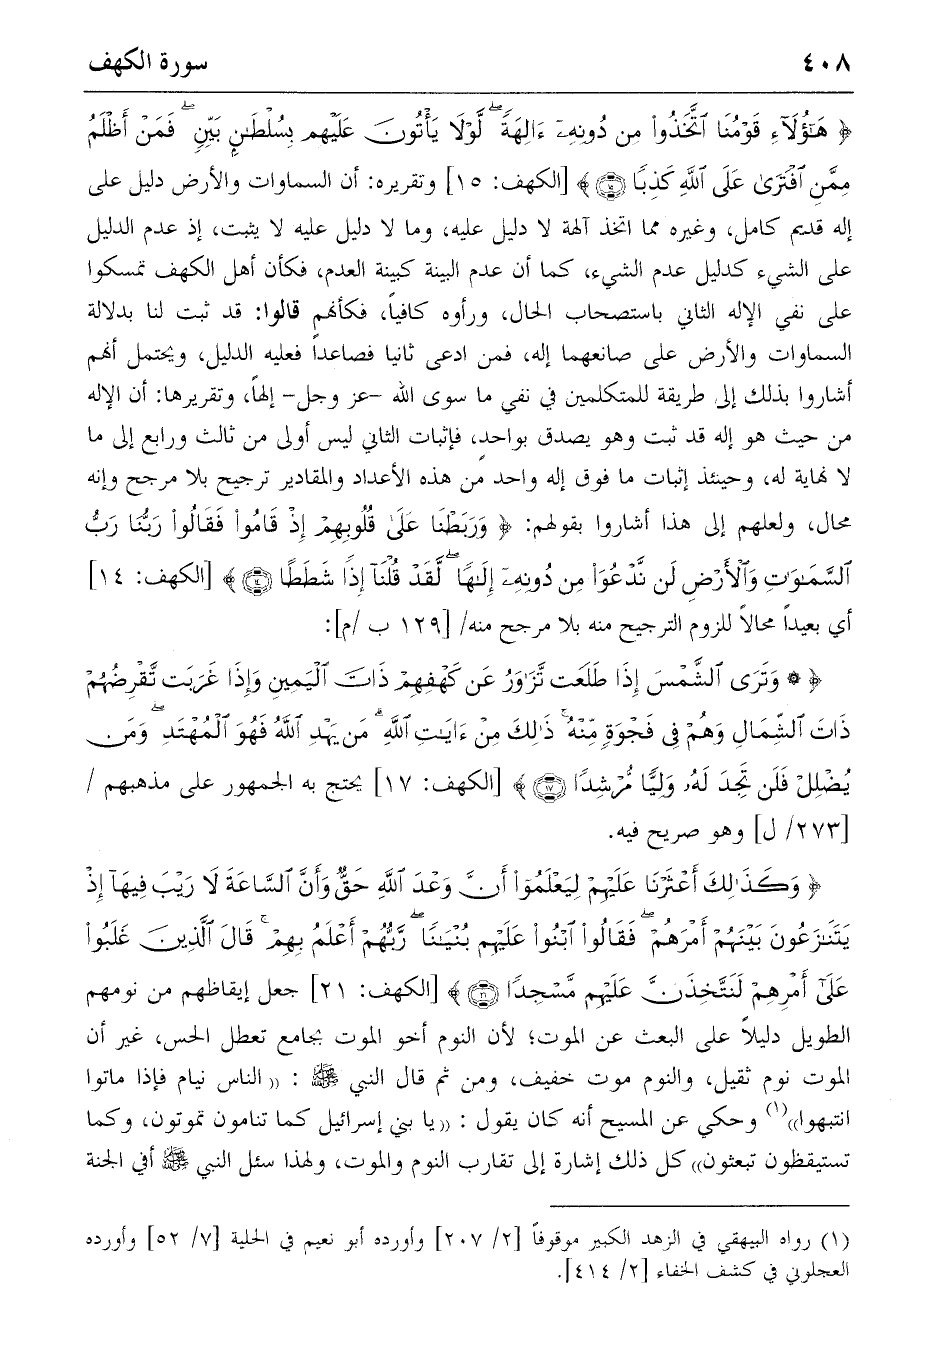 ٤٠٨ سورة الكهف
﴿ هَٰٓؤُلَآءِ قَوْمُنَا ٱتَّخَذُوا۟ مِن دُونِهِۦٓ ءَالِهَةً ۖ لَّوْلَا يَأْتُونَ عَلَيْهِم بِسُلْطَٰنٍۭ بَيِّنٍ ۖ فَمَنْ أَظْلَمُ
مِمَّنِ ٱفْتَرَىٰ عَلَى ٱللَّهِ كَذِبًا ۝ ﴾ [الكهف: ١٥] وتقريره: أن السماوات والأرض دليل على
إله قديم كامل، وغيره مما اتخذ آلهة لا دليل عليه، وما لا دليل عليه لا يثبت، إذ عدم الدليل
على الشيء كدليل عدم الشيء، كما أن عدم البينة كبينة العدم، فكأن أهل الكهف تمسكوا
على نفي الإله الثاني باستصحاب الحال، ورأوه كافياً، فكأنهم قالوا: قد ثبت لنا بدلالة
السماوات والأرض على صانعهما إله، فمن ادعى ثانيا فصاعداً فعليه الدليل، ويحتمل أنهم
أشاروا بذلك إلى طريقة للمتكلمين في نفي ما سوى الله -عز وجل- إلهاً، وتقريرها: أن الإله
من حيث هو إله قد ثبت وهو يصدق بواحد، فإثبات الثاني ليس أولى من ثالث ورابع إلى ما
لا نهاية له، وحينئذ إثبات ما فوق إله واحد من هذه الأعداد والمقادير ترجيح بلا مرجح وإنه
محال، ولعلهم إلى هذا أشاروا بقولهم: ﴿ وَرَبَطْنَا عَلَىٰ قُلُوبِهِمْ إِذْ قَامُوا۟ فَقَالُوا۟ رَبُّنَا رَبُّ
ٱلسَّمَٰوَٰتِ وَٱلْأَرْضِ لَن نَّدْعُوَا۟ مِن دُونِهِۦٓ إِلَٰهًا ۖ لَّقَدْ قُلْنَآ إِذًا شَطَطًا ۝١٤ ﴾ [الكهف: ١٤]
أي بعيداً محالاً للزوم الترجيح منه بلا مرجح منه/ [١٢٩ ب /م]:
﴿ ۞ وَتَرَى ٱلشَّمْسَ إِذَا طَلَعَت تَّزَٰوَرُ عَن كَهْفِهِمْ ذَاتَ ٱلْيَمِينِ وَإِذَا غَرَبَت تَّقْرِضُهُمْ
ذَاتَ ٱلشِّمَالِ وَهُمْ فِى فَجْوَةٍ مِّنْهُ ۚ ذَٰلِكَ مِنْ ءَايَٰتِ ٱللَّهِ ۗ مَن يَهْدِ ٱللَّهُ فَهُوَ ٱلْمُهْتَدِ ۖ وَمَن
يُضْلِلْ فَلَن تَجِدَ لَهُۥ وَلِيًّا مُّرْشِدًا ۝١٧ ﴾ [الكهف: ١٧] يحتج به الجمهور على مذهبهم /
[٢٧٣/ ل] وهو صريح فيه.
﴿ وَكَذَٰلِكَ أَعْثَرْنَا عَلَيْهِمْ لِيَعْلَمُوٓا۟ أَنَّ وَعْدَ ٱللَّهِ حَقٌّ وَأَنَّ ٱلسَّاعَةَ لَا رَيْبَ فِيهَآ إِذْ
يَتَنَٰزَعُونَ بَيْنَهُمْ أَمْرَهُمْ ۖ فَقَالُوا۟ ٱبْنُوا۟ عَلَيْهِم بُنْيَٰنًا ۖ رَّبُّهُمْ أَعْلَمُ بِهِمْ ۚ قَالَ ٱلَّذِينَ غَلَبُوا۟
عَلَىٰٓ أَمْرِهِمْ لَنَتَّخِذَنَّ عَلَيْهِم مَّسْجِدًا ۝٢١ ﴾ [الكهف: ٢١] جعل إيقاظهم من نومهم
الطويل دليلاً على البعث عن الموت؛ لأن النوم أخو الموت بجامع تعطل الحس، غير أن
الموت نوم ثقيل، والنوم موت خفيف، ومن ثم قال النبي ﷺ : ((الناس نيام فإذا ماتوا
انتبهوا))(١) وحكي عن المسيح أنه كان يقول : ((يا بني إسرائيل كما تنامون تموتون، وكما
تستيقظون تبعثون)) كل ذلك إشارة إلى تقارب النوم والموت، ولهذا سئل النبي ﷺ أفي الجنة
(١) رواه البيهقي في الزهد الكبير موقوفاً [٢/ ٢٠٧] وأورده أبو نعيم في الحلية [٧/ ٥٢] وأورده
العجلوني في كشف الخفاء [٢/ ٤١٤].